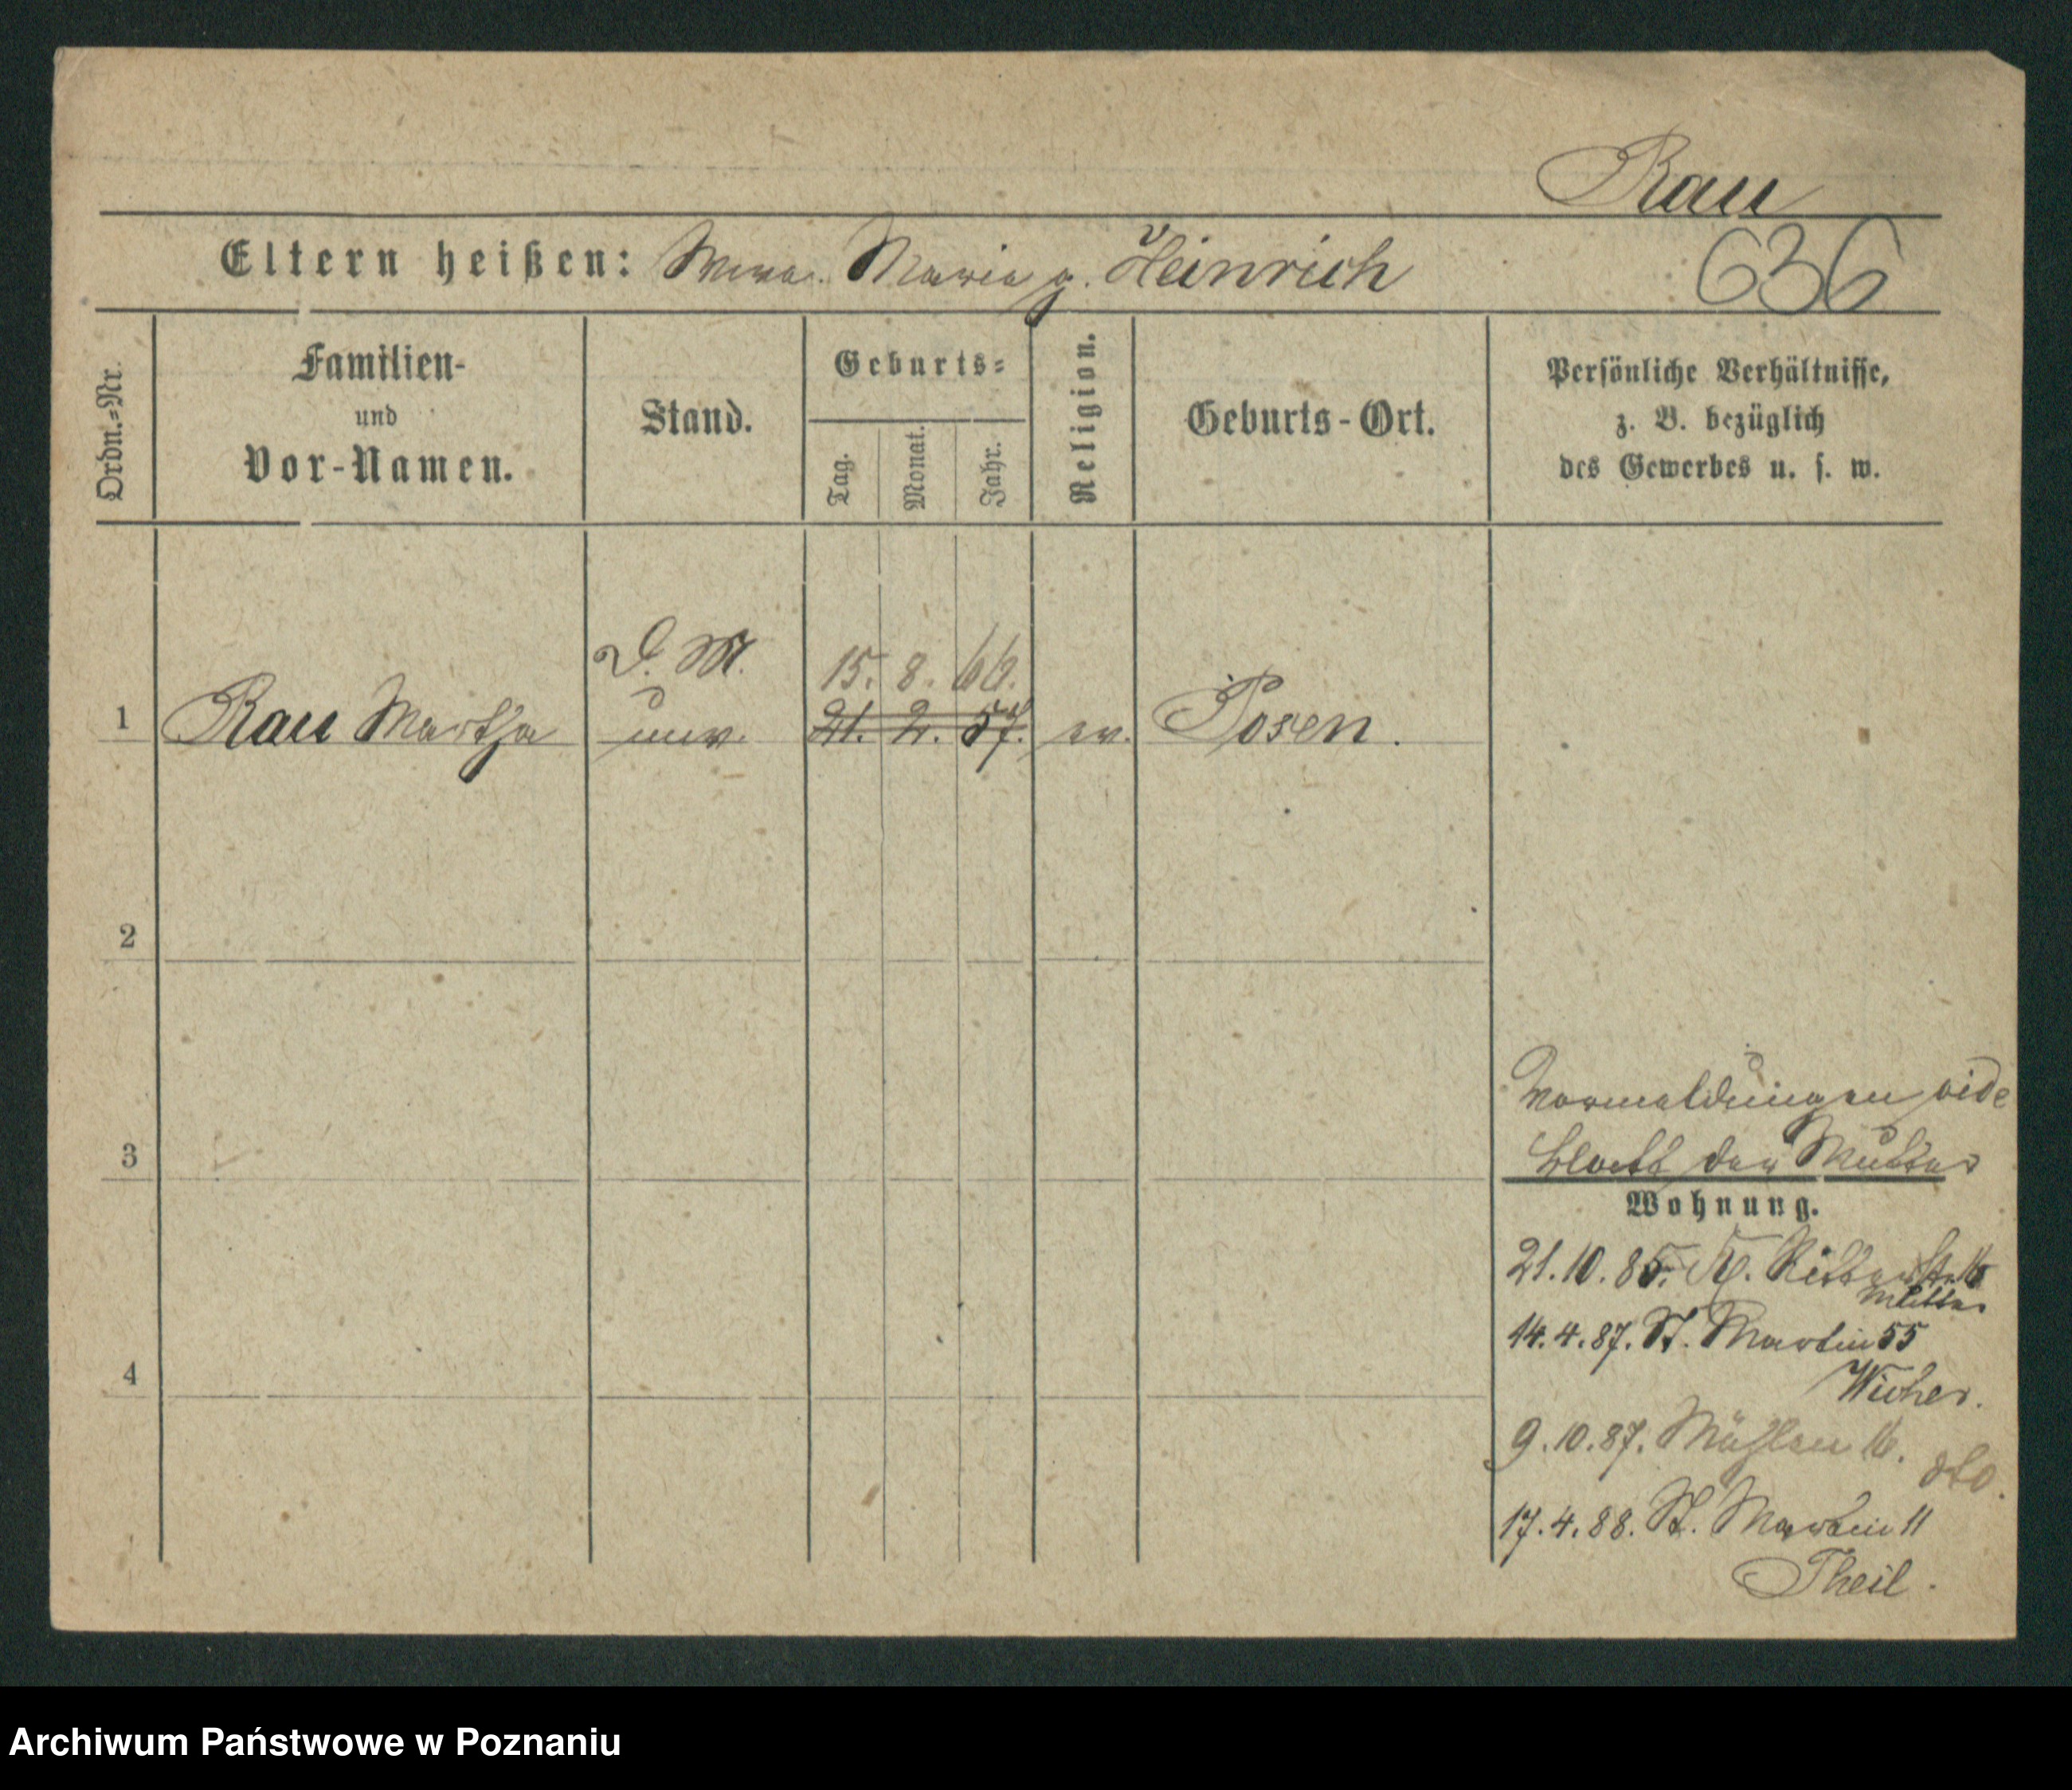 Rau
Eltern heißen: Wwe. Maria g. Heinrich
636
Ordn.-Nr.
Familien-
und
Vor-Namen.
Stand.
Geburts-
Tag.
Monat.
Jahr.
Religion.
Geburts-Ort.
Persönliche Verhältnisse,
z. B. bezüglich
des Gewerbes u. s. w.
D. M.
15. 8. 66.
1 Rau Martha unv. 21. 2. 57. ev. Posen.
2
3
4
Vormeldungen vide
Blatt der Mutter
Wohnung.
21.10.85. Kl. Ritterstr. 16
Mutter
14.4.87. St. Martin 55
Wicher.
9.10.87. Mühlen 16.
dto.
17.4.88. St. Martin 11
Theil.
Archiwum Państwowe w Poznaniu